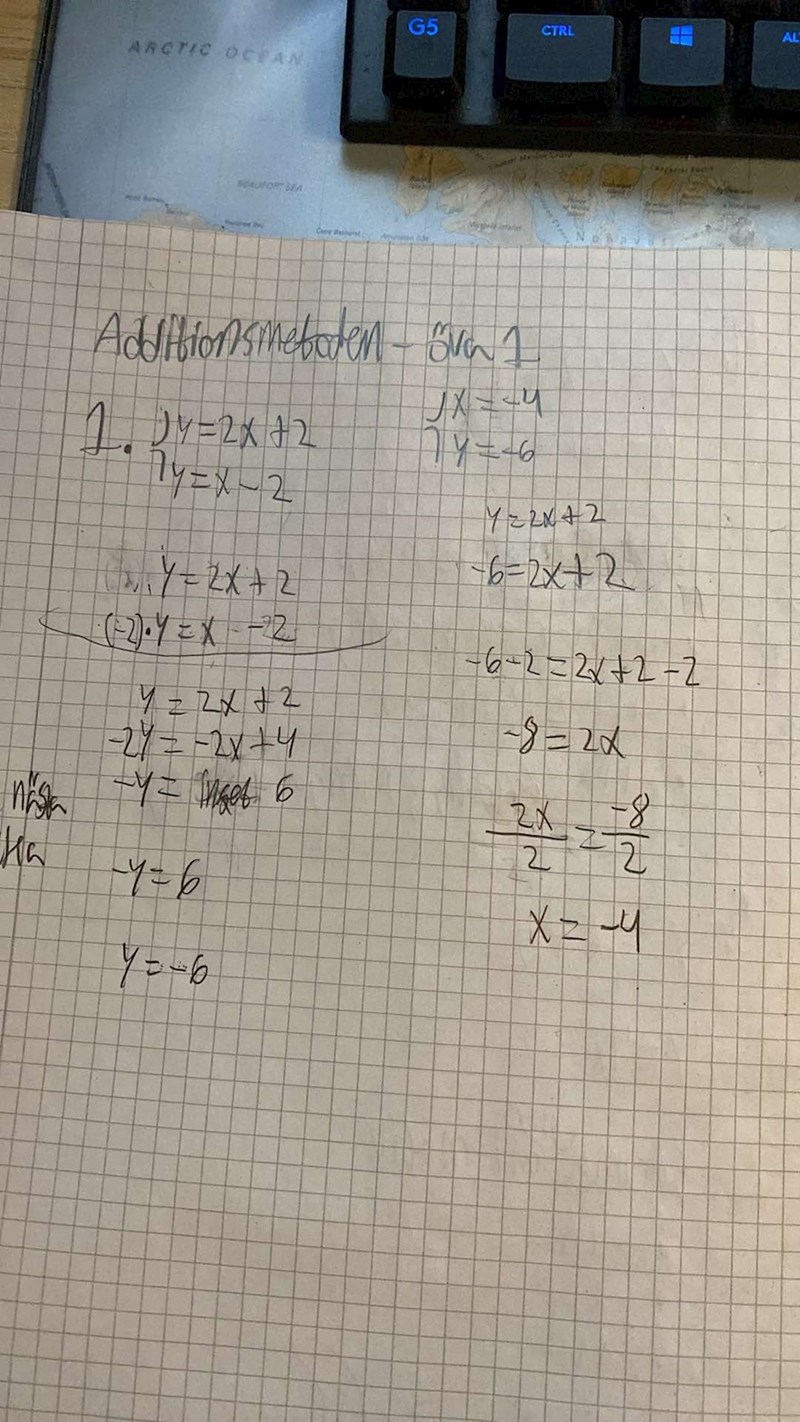 G5
CTRL
ARCTIC OCEAN
BEAUFORT SEA
Additionsmetoden - öva 1
1. { y = 2x + 2
{ y = x - 2
y = 2x + 2
(-2)·y = x - 2
y = 2x + 2
-2y = -2x + 4
-y = 6
-y = 6
y = -6
{ x = -4
{ y = -6
y = 2x + 2
-6 = 2x + 2
-6 - 2 = 2x + 2 - 2
-8 = 2x
2x/2 = -8/2
x = -4